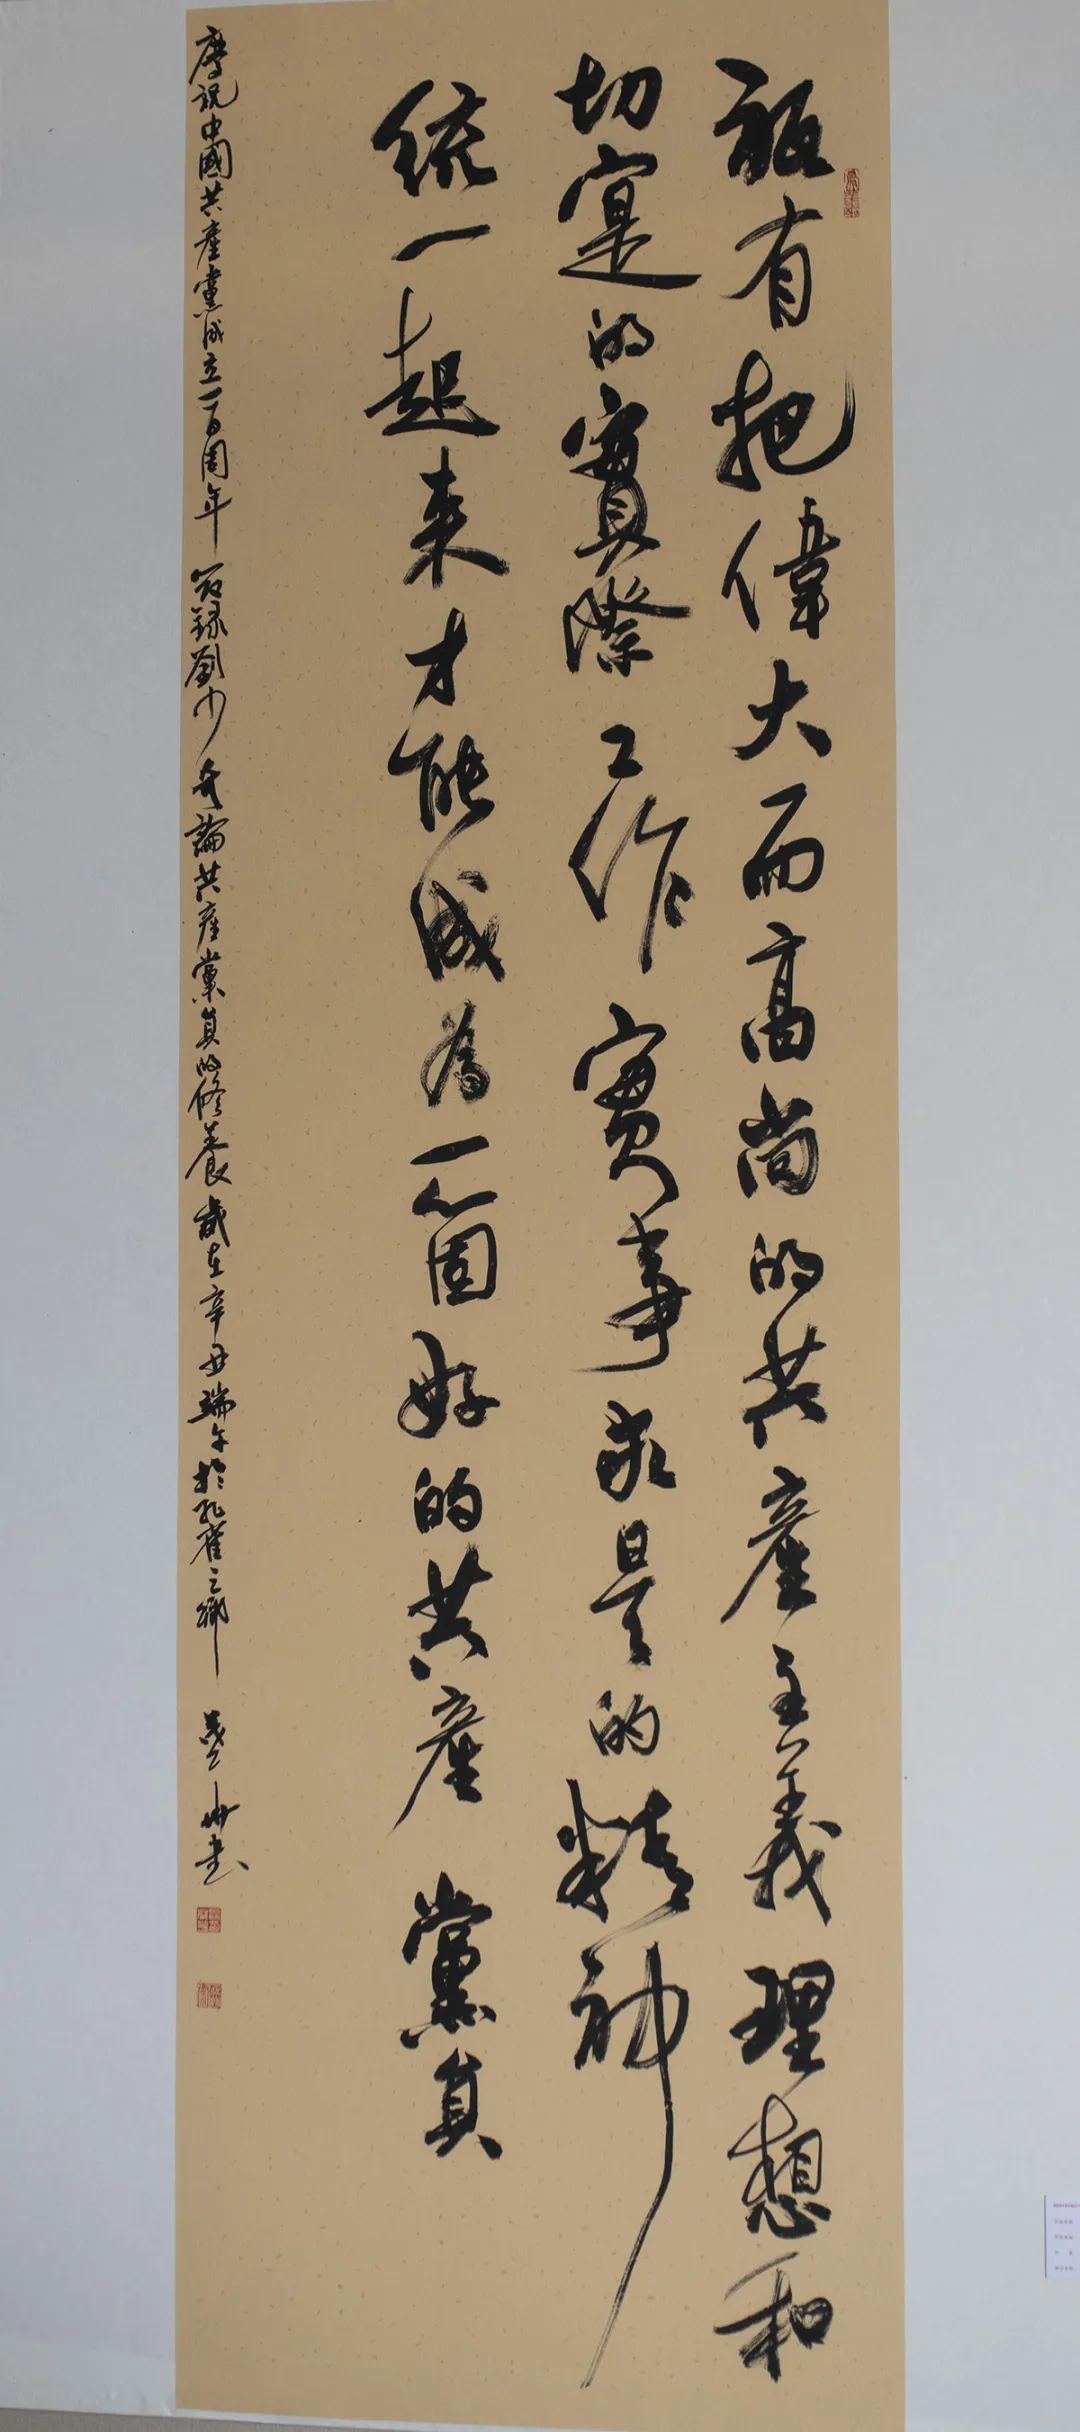 祗有把偉大而高尚的共產主義理想和
切寔的實際工作實事求是的精神
統一起来才能成為一箇好的共產黨員
慶祝中國共產黨成立一百周年 節録劉少奇論共産黨員的修養 歲在辛丑端午於孔雀之鄉